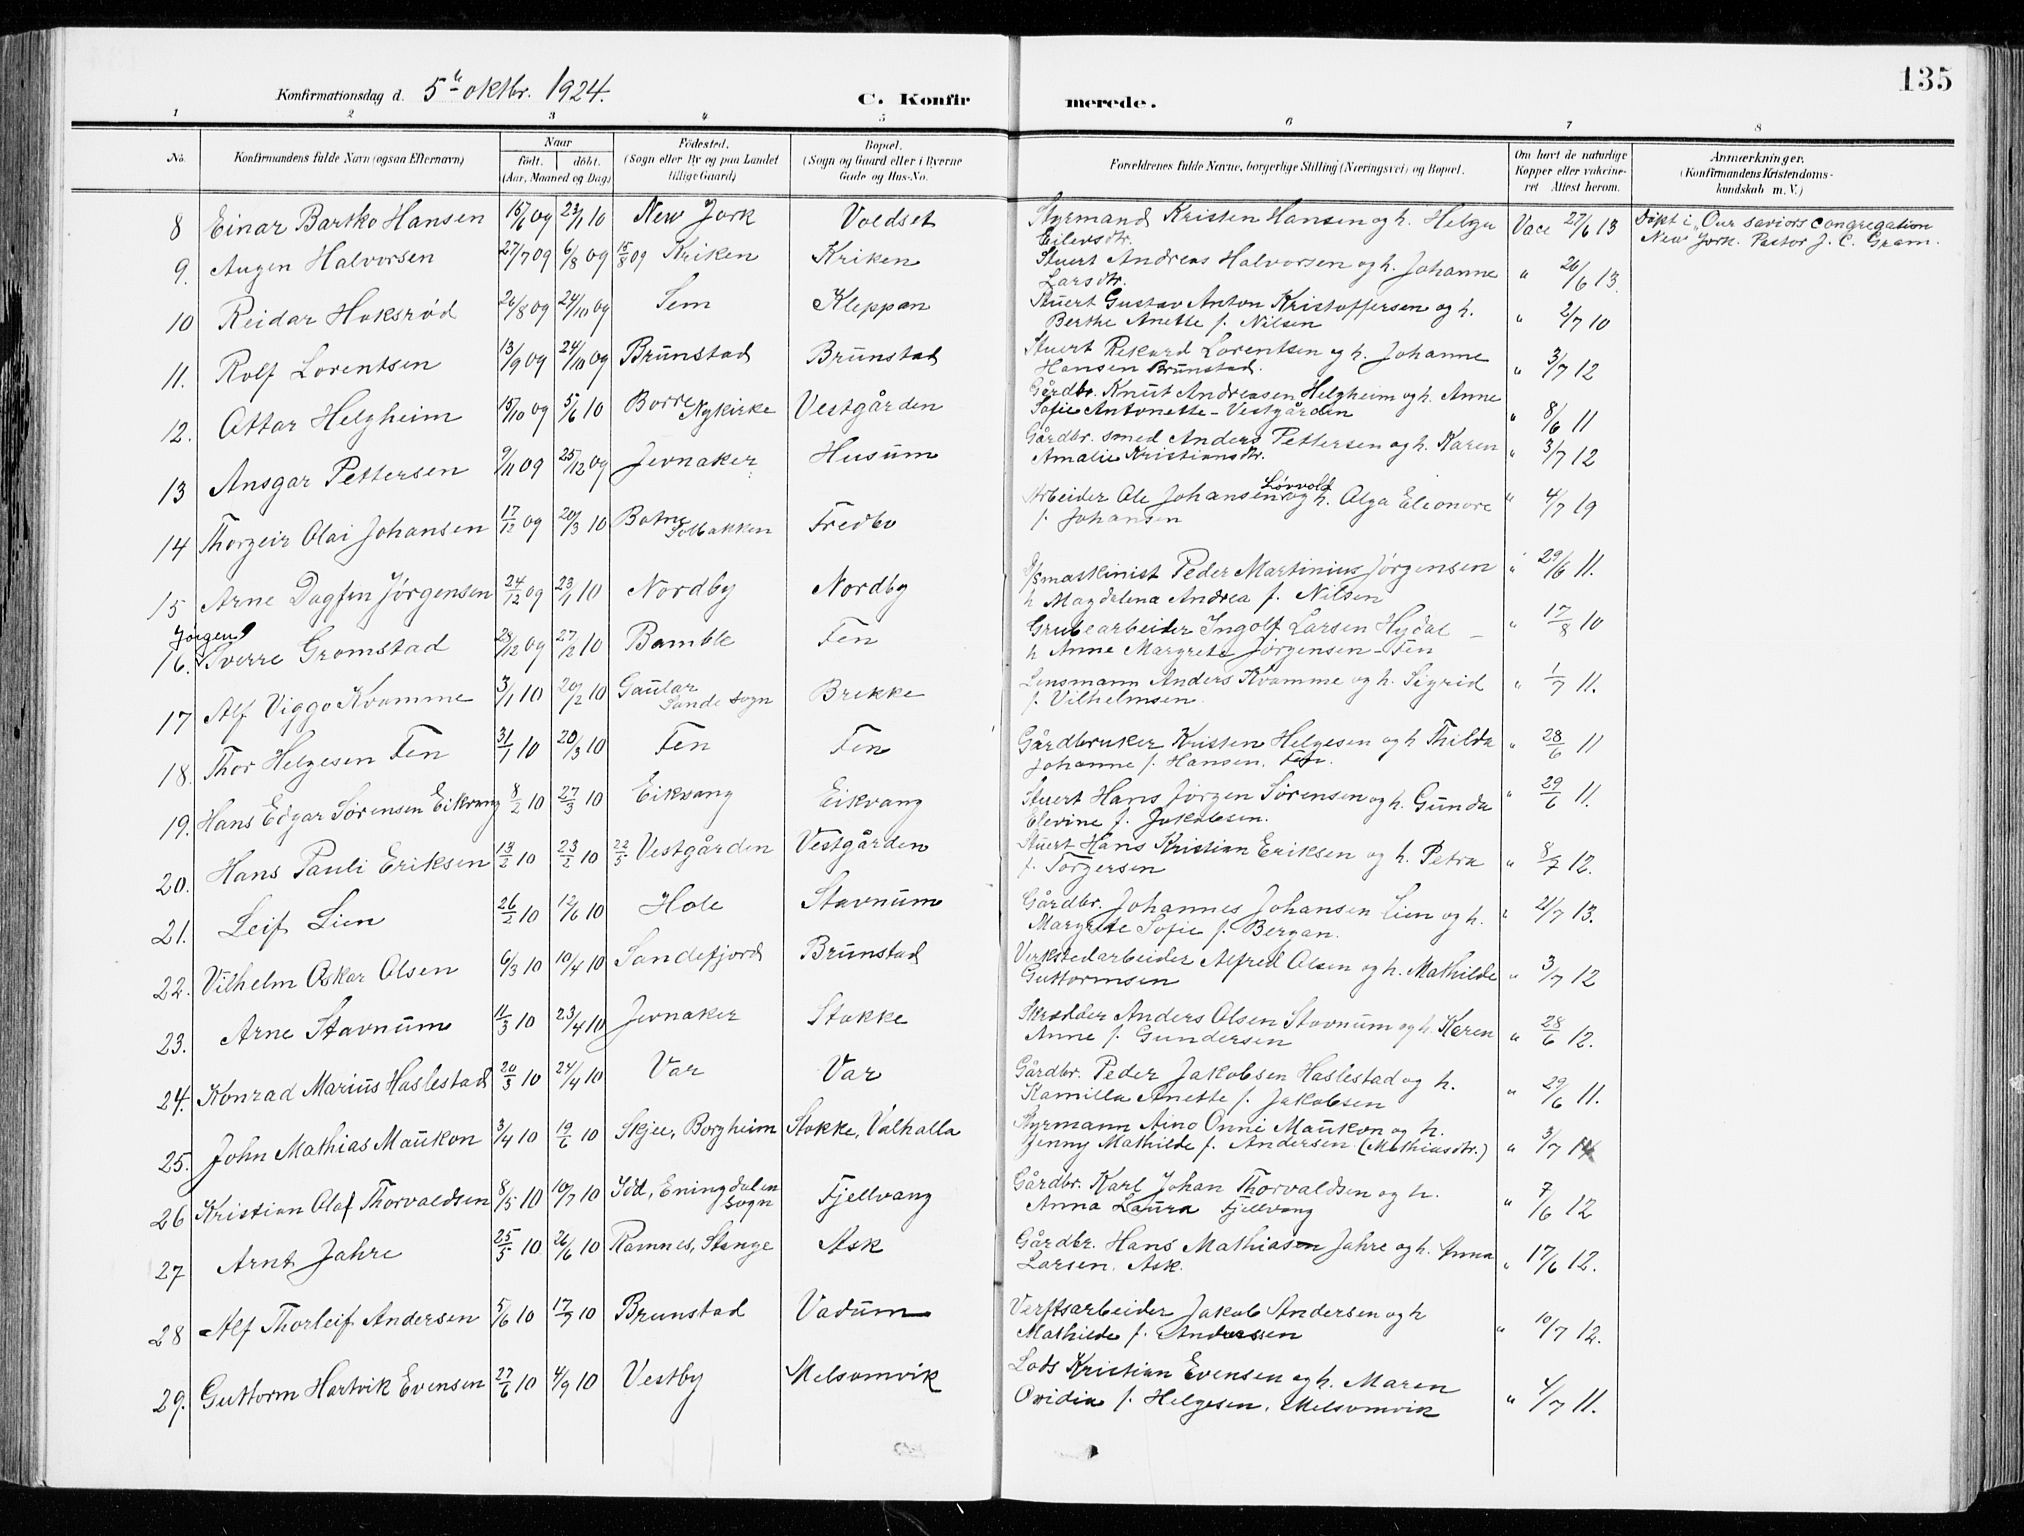 135
Konfirmationsdag d. 5te oktbr. 1924.
C. Konfir merede.
1 2 3 4 5 6 7 8
No. Konfirmandens fulde Navn (ogsaa Efternavn) Naar født. døbt. (Aar, Maaned og Dag) Fødested. (Sogn eller By og paa Landet tillige Gaard) Bopel. (Sogn og Gaard eller i Byerne Gade og Hus-No. Forældrenes fulde Navne, borgerlige Stilling (Næringsvei) og Bopel. Om havt de naturlige Kopper eller vakcineret Attest herom. Anmærkninger. (Konfirmandens Kristendomskundskab m. V.)
8 Einar Bartko Hansen 15/6 09 23/1 10 New York Voldset Styrmand Kristen Hansen og h. Helga Vace 27/6 13 Døpt i "Our saviors congregation
Eilevsdtr. New York. Pastor J. C. Gram.
9. Augen Halvorsen 27/7 09 6/8 09 15/8 09 Kriken Kriken Stuert Andreas Halvorsen og h. Johanne " 26/6 13.
Larsdtr.
10 Reidar Haksrød 26/8 09 24/10 09 Sem Kleppan Stuert Gustav Anton Kristoffersen og h. " 2/7 10
Berthe Anette f. Nilsen
11. Rolf Lorentsen 13/9 09 24/10 09 Brunstad Brunstad Stuert Rikard Lorentsen og h. Johanne " 3/7 12
Hansen Brunstad.
12. Ottar Helgheim 15/10 09 5/6 10 Borre Nykirke Vestgården Gårdbr. Knut Andreasen Helgheim og h. Anne " 8/6 11
Sofie Antonette - Vestgården
13 Ansgar Pettersen 9/11 09 25/12 09 Jevnaker Husum Gårdbr. smed Anders Pettersen og h. Karen " 3/7 12
Amalie Kristiansdtr.
14 Thorgeir Olai Johansen 17/12 09 20/3 10 Botne Solbakken Fredbo Arbeider Ole Johansen Løvvold og h. Olga Eleonore " 4/7 19
f. Johansen
15 Arne Dagfin Jørgensen 24/12 09 23/1 10 Nordby Nordby D/Smaskinist Peder Martinius Jørgensen " 29/6 11.
h Magdalena Andrea f. Nilsen
16. Jørgen Sverre Gromstad 23/12 09 27/2 10 Bamble Fen Grubearbeider Ingolf Larsen Hydal - " 17/8 10
h Anne Margrete Jørgensen - Fen
17 Alf Viggo Kvamme 3/1 10 20/2 10 Gaular Sande sogn Brekke Lensmann Anders Kvamme og h. Sigrid " 1/7 11.
f. Vilhelmsen.
18. Thor Helgesen Fen 31/1 10 20/3 10 Fen Fen Gårdbruker Kristen Helgesen og h Thilda " 28/6 11
Johanne f. Hansen. Fen.
19. Hans Edgar Sørensen Eikvang 8/2 10 27/3 10 Eikvang Eikvang Stuert Hans Jørgen Sørensen og h. Gunda " 29/6 11.
Elevine f. Jakobsen.
20. Hans Pauli Eriksen 13/2 10 23/2 10 22/5 Vestgården Vestgården Stuert Hans Kristian Eriksen og h. Petra " 8/7 12.
f. Torgersen
21. Leif Lien 26/2 10 12/6 10 Hole Stavnum Gårdbr. Johannes Johansen Lien og h. " 21/7 13.
Margrete Sofie f. Bergan.
22. Vilhelm Oskar Olsen 6/3 10 10/4 10 Sandefjord Brunstad Verkstedarbeider Alfred Olsen og h. Mathilde " 3/7 12
Guttormsen
23. Arne Stavnum 11/3 10 23/4 10 Jevnaker Stokke Skrædder Anders Olsen Stavnum og h. Karen " 28/6 12.
Anne f. Gundersen
24. Konrad Marius Haslestad 20/3 10 24/4 10 Var Var Gårdbr. Peder Jakobsen Haslestad og h. " 29/6 11.
Kamilla Anette f. Jakobsen
25. John Mathias Maukon 3/4 10 19/6 10 Skjee, Borgheim Stokke, Valhalla Styrmann Aino Onni Maukon og h. " 3/7 14
Jenny Mathilde f. Andersen (Mathiasdtr.)
26 Kristian Olaf Thorvaldsen 8/5 10 10/7 10 Idd, Eningdalen sogn Fjellvang Gårdbr. Karl Johan Thorvaldsen og h. " 7/6 12
Anna Laura Fjellvang
27 Arnt Jahre 25/5 10 26/6 10 Ramnes, Stange Ask Gårdbr. Hans Mathiasen Jahre og h. Anna " 17/6 12.
Larsen. Ask.
28 Alf Thorleif Andersen 5/6 10 17/7 10 Brunstad Vadum Verftsarbeider Jakob Andersen og h " 10/7 12.
Mathilde f. Anderssen
29. Guttorm Hartvik Evensen 27/6 10 4/9 10 Vestby Melsomvik Lods Kristian Evensen og h. Maren " 4/7 11.
Ovidia f. Helgesen, Melsomvik